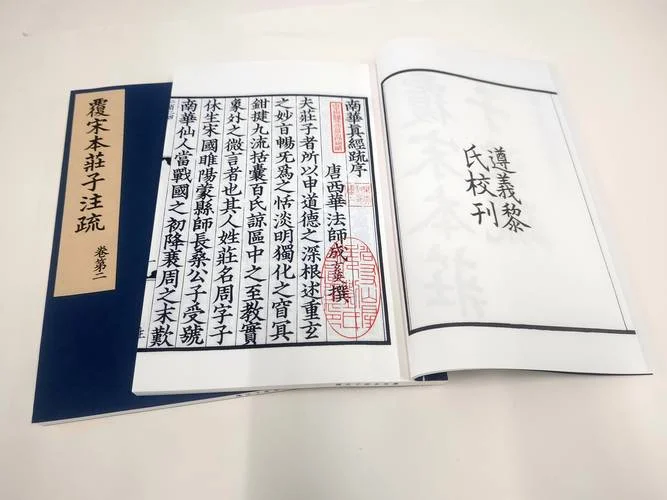 覆宋本莊子注疏
卷第二
遵義黎
氏校刊
南華真經疏序
唐西華法師成玄英撰
夫莊子者所以申道德之深根述重玄
之妙旨暢无爲之恬淡明獨化之窅冥
鉗揵九流括囊百氏諒區中之至教實
象外之微言者也其人姓莊名周字子
休生宋國睢陽蒙縣師長桑公子受號
南華仙人當戰國之初降衰周之末歎